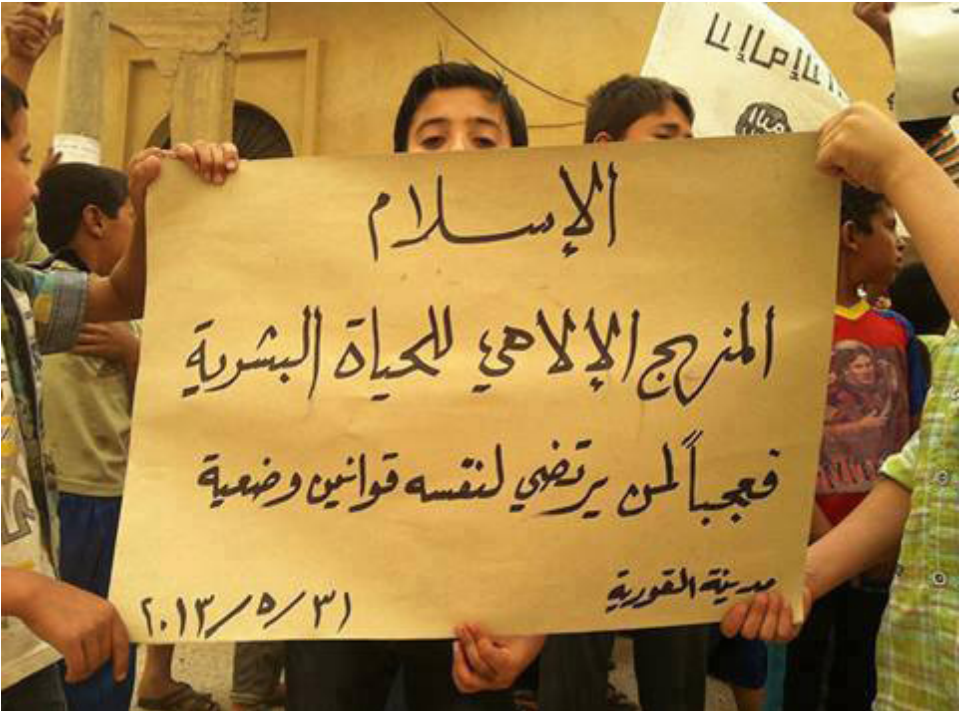 الإسلام
المنهج الإلاهي للحياة البشرية
فعجباً لمن يرتضي لنفسه قوانين وضعية
مدينة القورية
٢٠١٣/٥/٣١